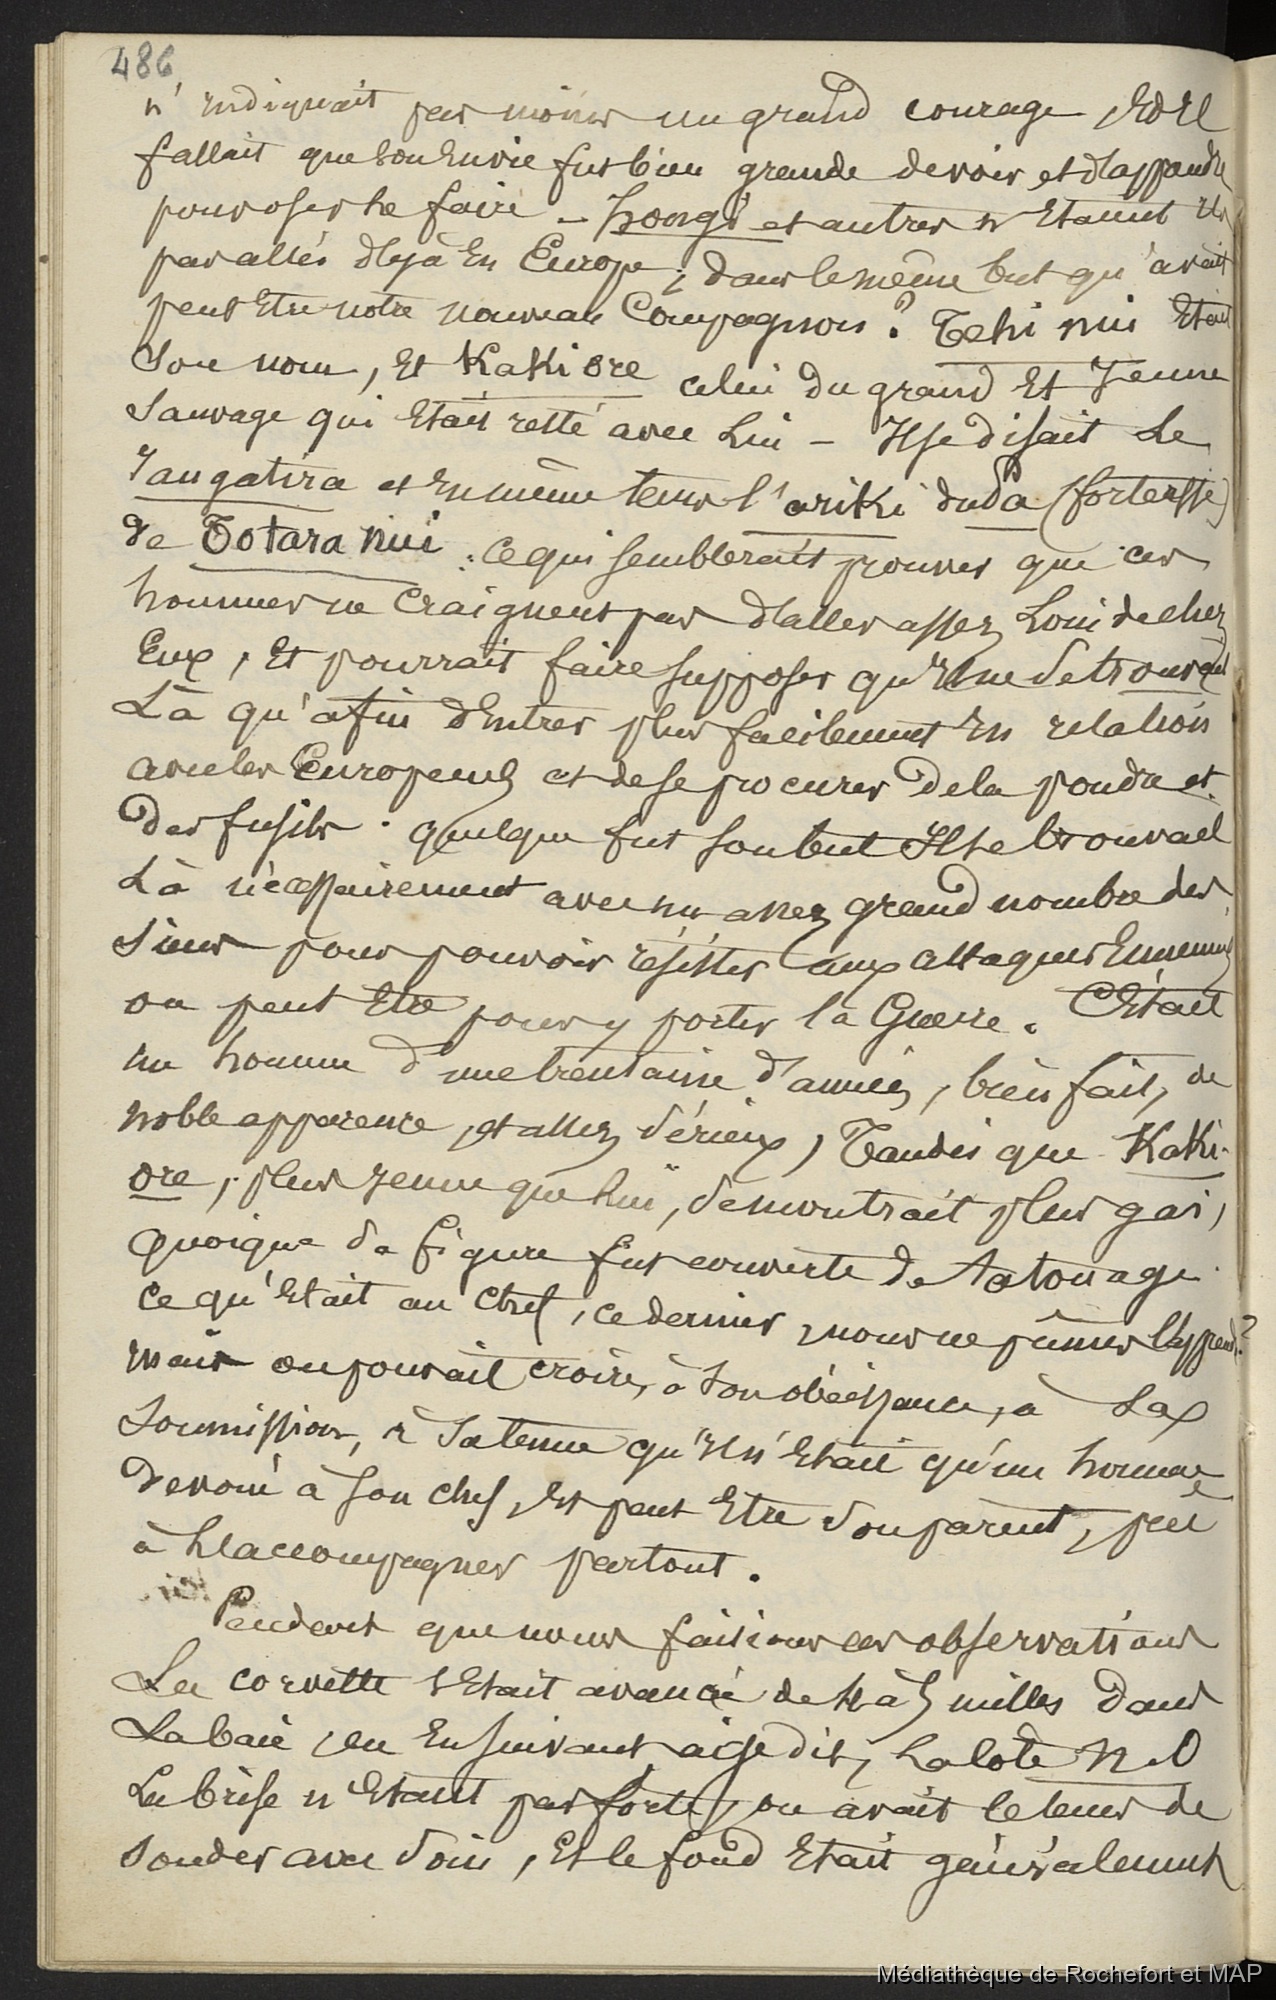 486
n'indiquait pas moins un grand courage, et Il
fallait que son Envie fut bien grande de voir et d'apprendre
pour oser le faire – hongi et autres n'Etaient Ils
pas allés déjà En Europe, dans le même but qu'avait
peut Etre notre nouveau Compagnon ? Tehi nui Etait
Son nom, Et Kaki ore celui du grand Et Jeune
Sauvage qui Etait resté avec Lui – Il se disait Le
rangatira et En même tems l'ariki du Pa (forteresse)
de Totara nui : ce qui semblerait prouver que ces
hommes ne Craignent pas d'aller assez Loin de chez
Eux, Et pourrait faire supposer qu'Il ne se trouvait
Là qu'afin d'Entrer plus facilement En relation
avec les Européens et de se procurer de la poudre et
Des fusils. quelque fut son but Il se trouvait
Là nécessairement avec un assez grand nombre des
Siens pour pouvoir résister aux attaques Ennemies
ou peut Etre pour y porter la Guerre. C'Etait
un homme d'une trentaine d'années, bien fait, de
noble apparence, et assez sérieux, Tandis que Kaki-
ore, plus jeune que lui, se montrait plus gai,
quoique sa figure fut couverte de tatouage.
ce qu'Etait au Chef, ce dernier, nous ne pûmes l'apprendre ?
mais on pouvait croire, à son obéissance, à Sa
Soumission, à Sa tenue qu'Il n'Etait qu'un homme
Dévoué à son chef, Et peut Etre Son parent, prêt
à L'accompagner partout.
Pendant que nous faisions ces observations
La corvette s'Etait avancée de 4 à 5 milles Dans
La baie, en En suivant, ai je dit, La côte N.O
La brise n'Etant pas forte, on avait le tems de
Sonder avec Soin, Et le fond Etait généralement
Médiathèque de Rochefort et MAP